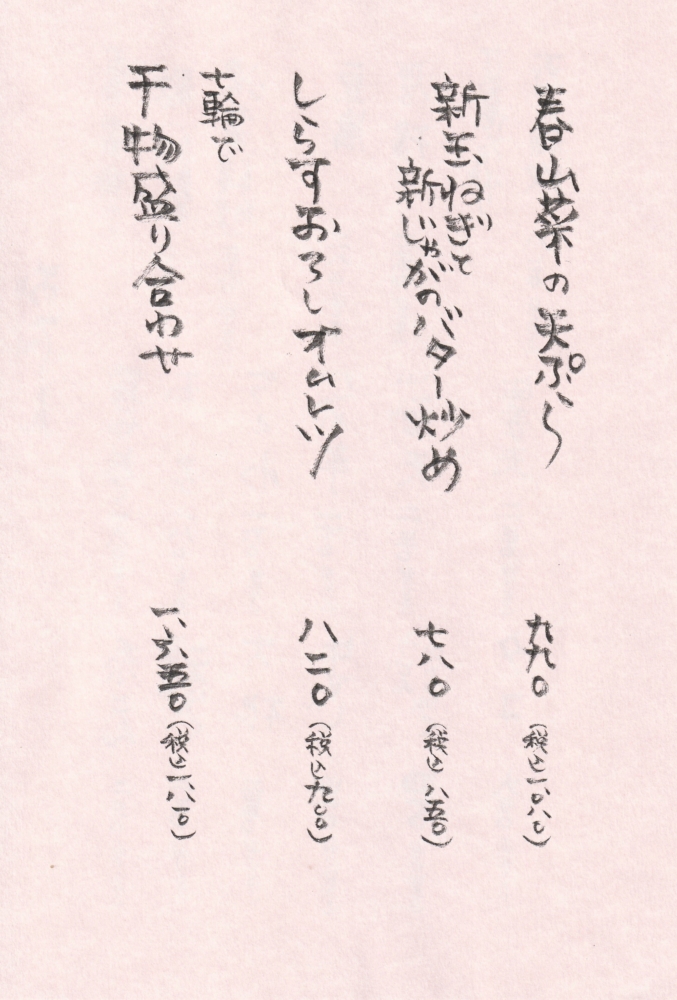 春山菜の天ぷら
九九〇（税込一、〇八〇）
新玉ねぎと
新じゃがのバター炒め
七八〇（税込八五〇）
しらすおろしオムレツ
八二〇（税込九〇〇）
七輪で
干物盛り合わせ
一、六五〇（税込一、八一〇）